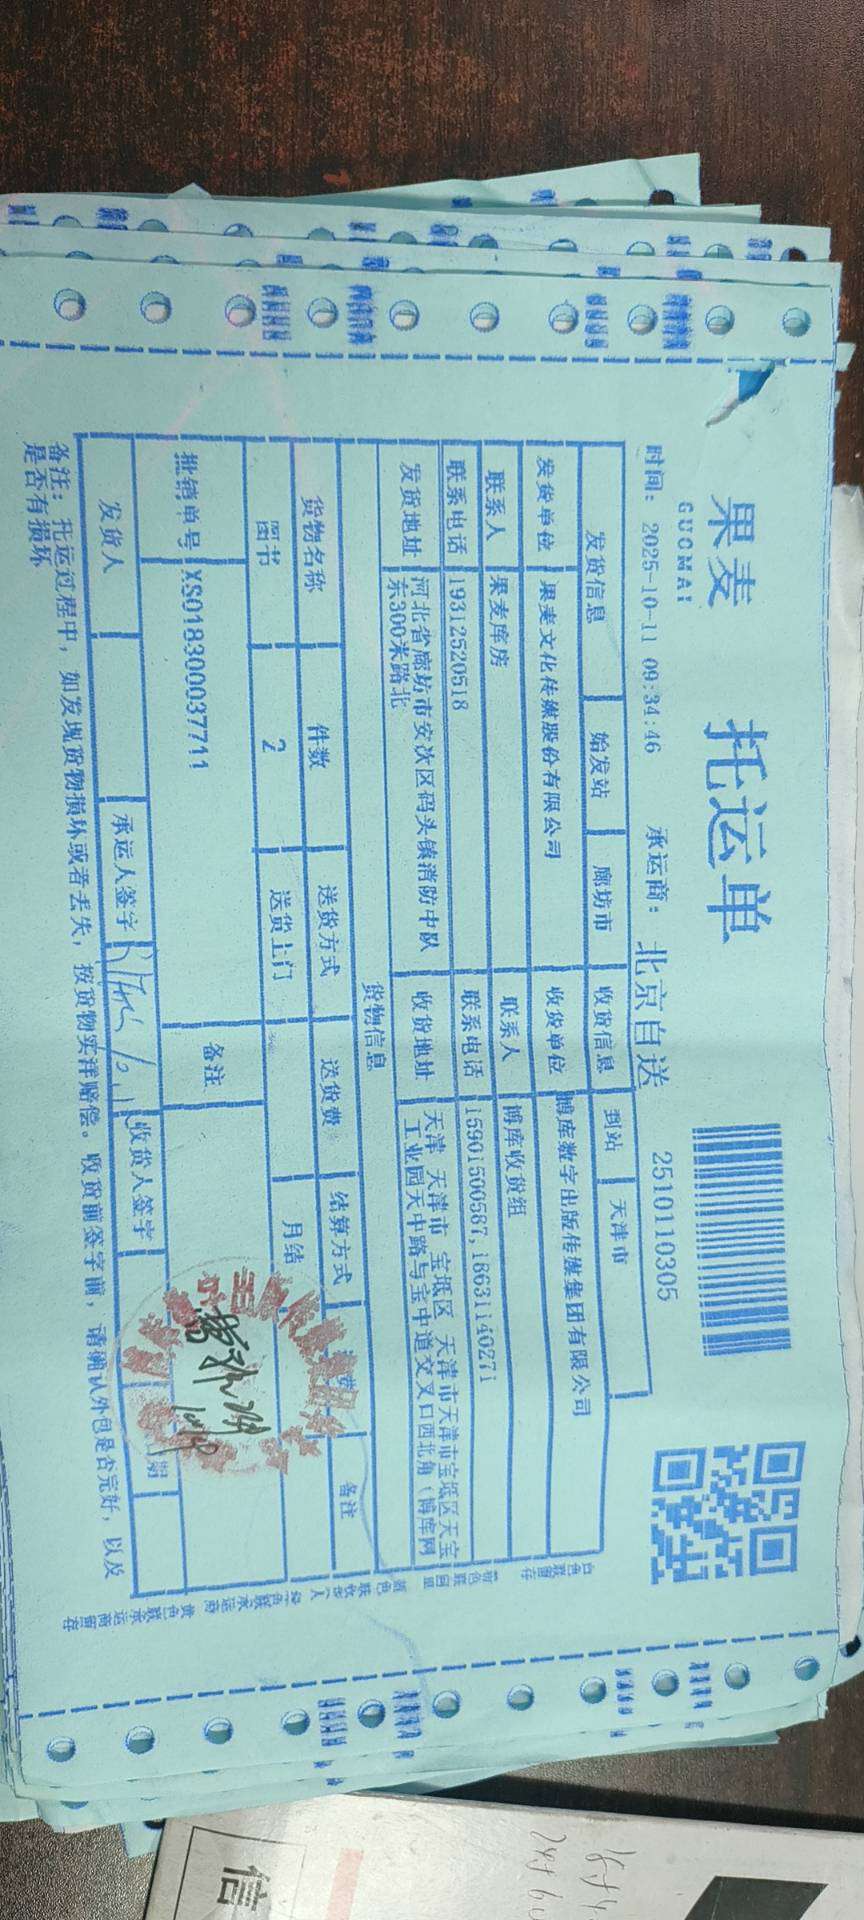 果麦
GUOMAI
托运单
时间: 2025-10-11 09:34:46 承运商: 北京自送 2510110305
发货信息 始发站 廊坊市 收货信息 到站 天津市
发货单位 果麦文化传媒股份有限公司 收货单位 博库数字出版传媒集团有限公司
联系人 果麦库房 联系人 博库收货组
联系电话 19312520518 联系电话 15901500587,18631140271
发货地址 河北省廊坊市安次区码头镇消防中队
东300米路北
收货地址 天津 天津市 宝坻区 天津市天津市宝坻区天宝
工业园天中路与宝中道交叉口西北角(博库网
货物信息
货物名称 件数 送货方式 送货费 结算方式 备注
图书 2 送货上门 月结
批销单号 XS018300037711 备注
发货人 承运人签字 收货人签字
备注: 托运过程中, 如发现货物损坏或者丢失, 按货物实洋赔偿。收货前签字前, 请确认外包是否完好, 以及
是否有损坏
信